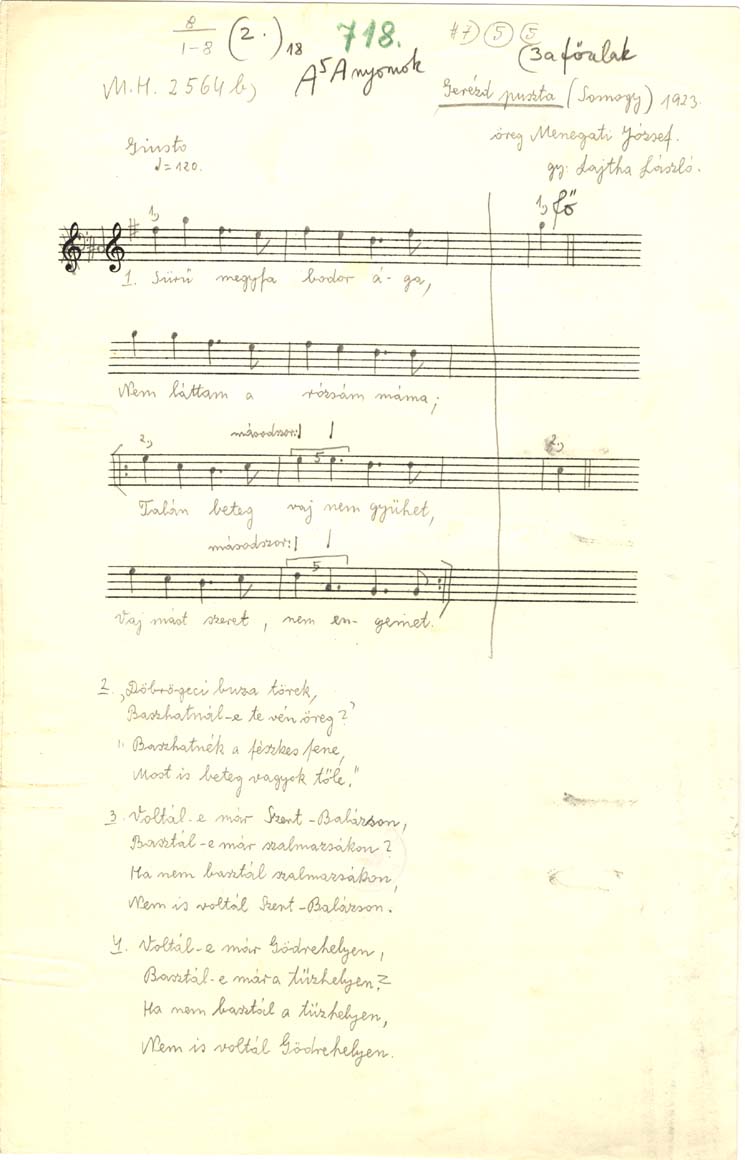 8
1-8
(2.) 18
718.
#7) 5 5
A⁵A nyomok
(3a főalak
M.H. 2564 b)
Gerézd puszta (Somogy) 1923.
öreg Menegati József.
gy: Lajtha László.
Giusto
♩=120.
1)
1) fő
1. Sürü megyfa bodor á-ga,
Nem láttam a rózsám máma;
másodszor:
2)
5
2)
Talán beteg vaj nem gyühet,
másodszor:
5
Vaj mást szeret, nem en-gemet.
2. „Döbrögeci buza törek,
Baszhatnál-e te vén öreg?"
" Baszhatnék a fészkes fene,
Most is beteg vagyok tőle."
3. Voltál-e már Szent-Balázson,
Basztál-e már szalmazsákon?
Ha nem basztál szalmazsákon,
Nem is voltál Szent-Balázson.
4. Voltál-e már Gödrehelyen,
Basztál-e mára tüzhelyen?
Ha nem basztál a tüzhelyen,
Nem is voltál Gödrehelyen.